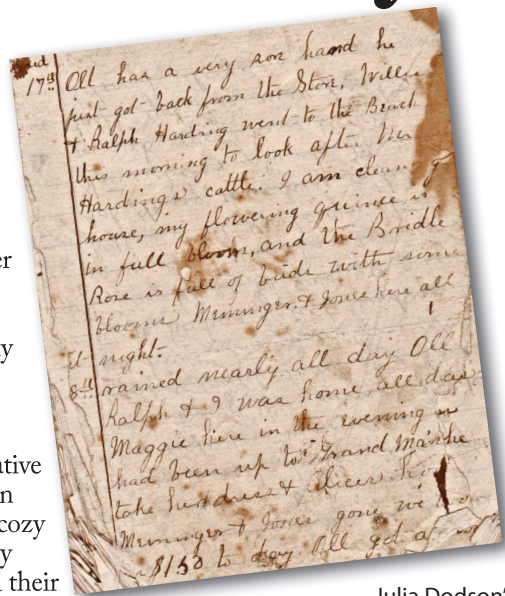 17th
Oll has a very sore hand he
just got back from the Stor, Willie
& Ralph Harding went to the Beach
this morning to look after Mr
Hardings cattle. I am cleaning
house, my flowering quince is
in full bloom, and the Bridle
Rose is full of buds with some
blooms Meninger & Jones here all
night.
rained nearly all day Oll
Ralph & I was home all day
Maggie here in the evening
had been up to Grand Ma's
take her dress &
Meninger & Jones gone we
$1.50 to day. Oll got
er
y
ative
n
cozy
y
their
Julia Dodson'